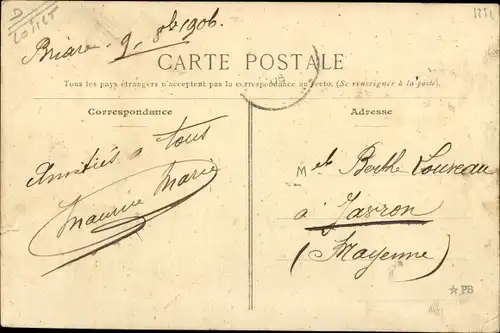 D
LOIRET
Briare 9 8bre 1906
CARTE POSTALE
Tous les pays étrangers n'acceptent pas la correspondance au recto. (Se renseigner à la poste).
Correspondance
Amitiés à tous
Maurice Marie
Adresse
Melle Berthe Louveau
à Javron
(Mayenne)
☆ PB